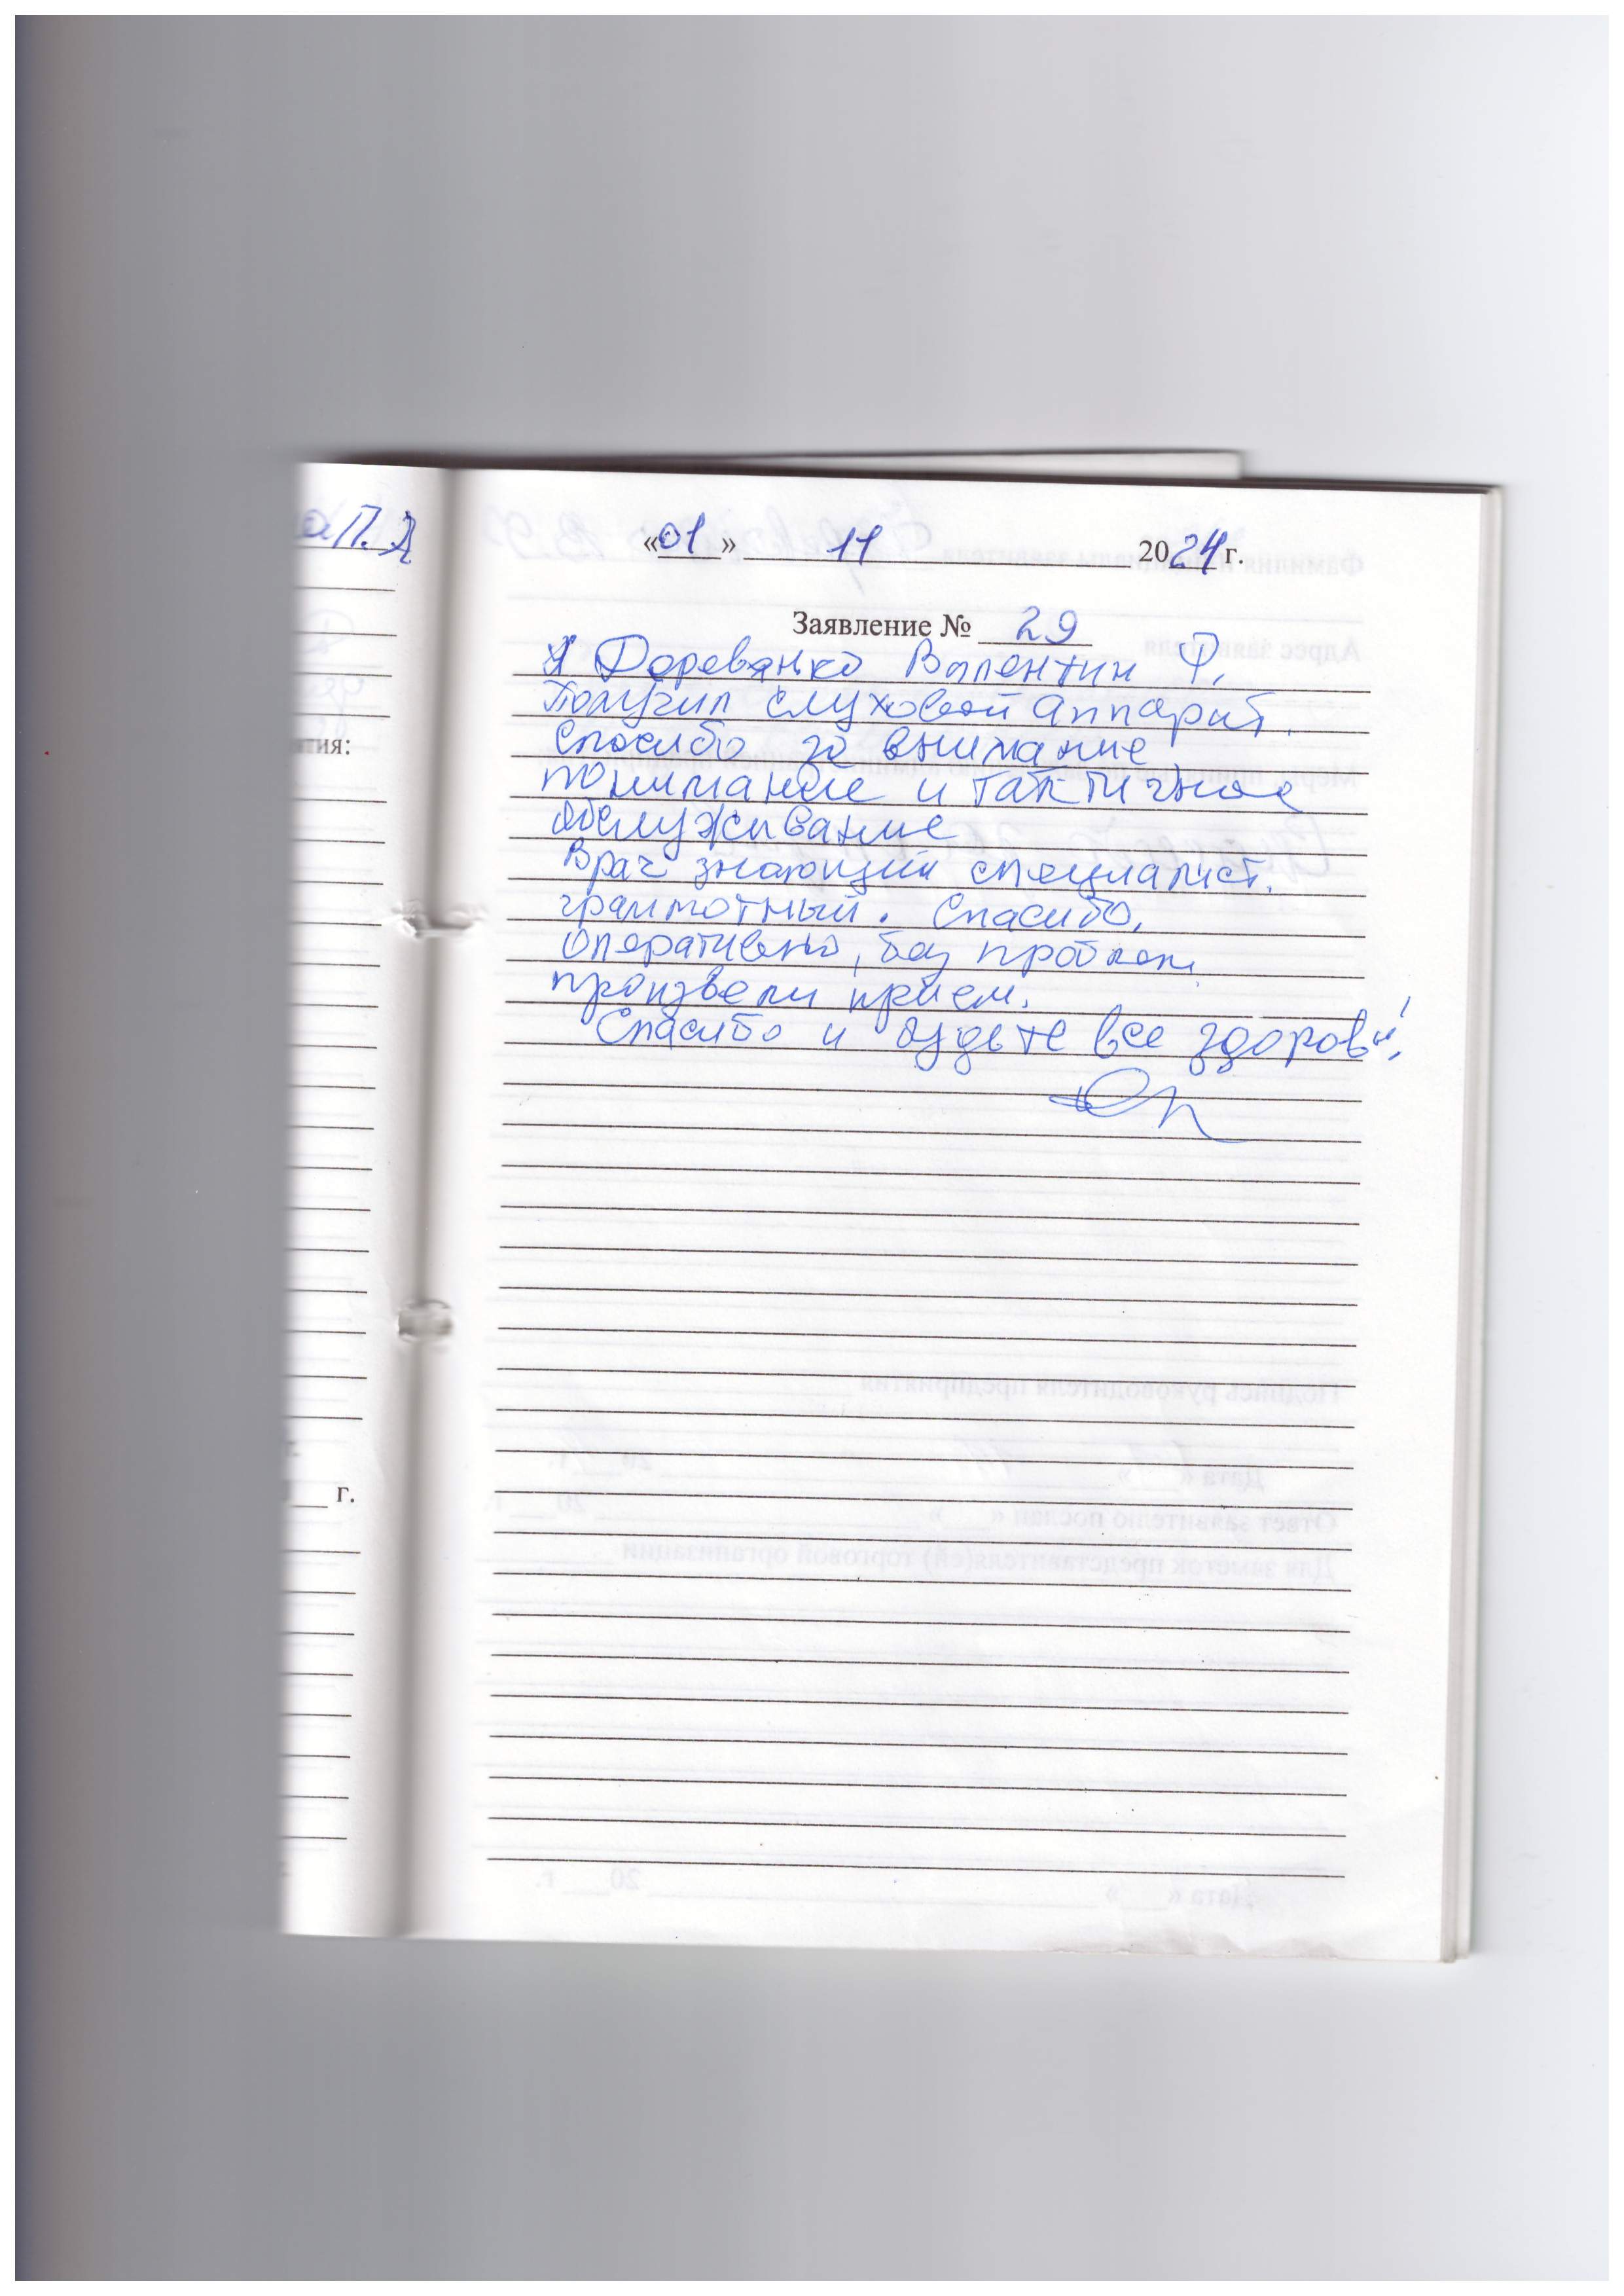 а П. Д
«01» 11 2024 г.
Заявление № 29
Я Деревянко Валентин Ф.
Получил слуховой аппарат.
Спасибо за внимание
понимание и тактичное
обслуживание
Врач знающий специалист.
грамотный. Спасибо.
Оперативно, без проблем
произвели прием.
Спасибо и будьте все здоровы!
тия:
г.